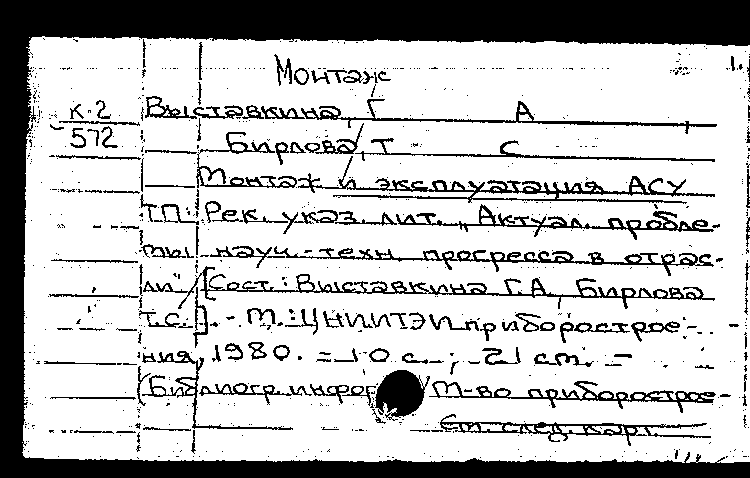 1.
Монтаж
К-2
572
Выставкина, Г А
Бирлова, Т С
Монтаж и эксплуатация АСУ
ТП: Рек. указ. лит. „Актуал. пробле-
мы науч.-техн. прогресса в отрас-
ли" [Сост.: Выставкина Г.А., Бирлова
Т.С.]. - М.: ЦНИИТЭИприборострое-
ния, 1980. = 10 с.; 21 см. -
(Библиогр. инфор / М-во приборострое-
См. след. карт.